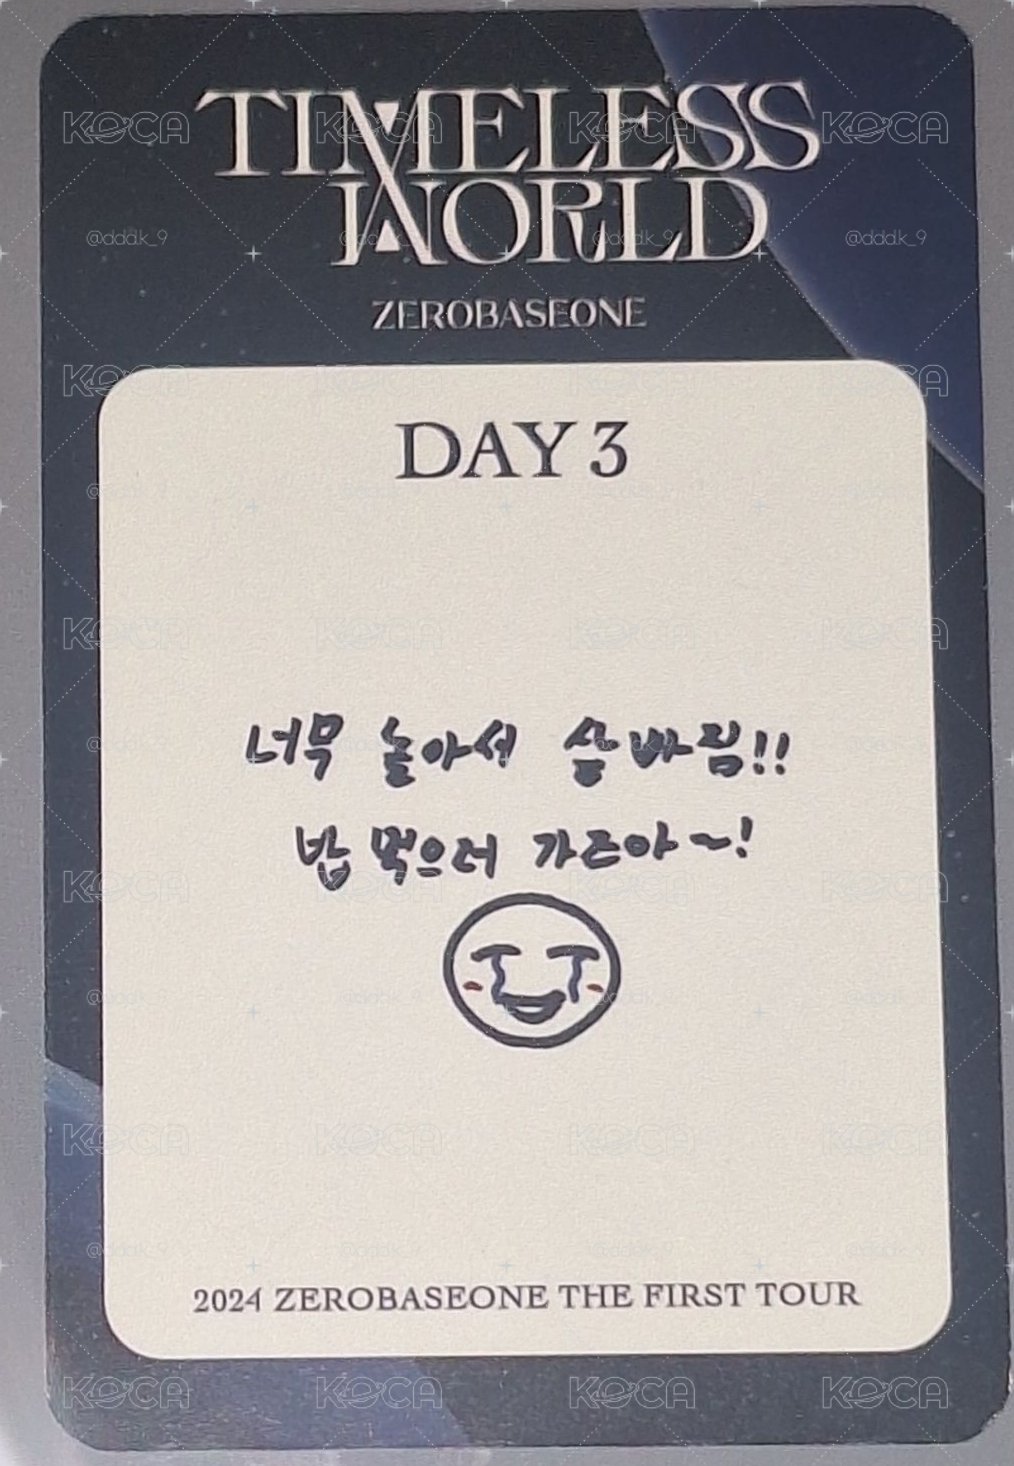 TIMELESS
WORLD
ZEROBASEONE
DAY 3
너무 놀아서 살빠짐!!
밥 먹으러 가즈아~!
2024 ZEROBASEONE THE FIRST TOUR
KOCA
@dddk_9